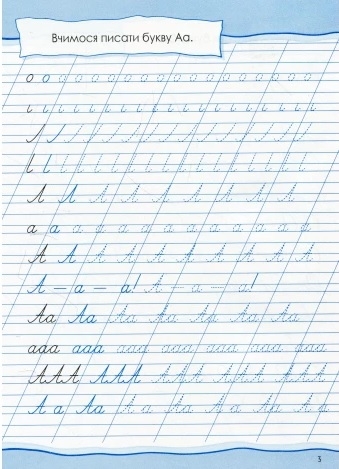 Вчимося писати букву Аа.
о о о о о о о о о о о о о о о о о о
і і і і і і і і і і і і і і і і і і і
А А А А А А А А
а а а а а а а а а а а а а
А А А А А А А А А А
А – а – а! А – а – а!
Аа Аа Аа Аа Аа Аа Аа
ааа ааа ааа ааа ааа ааа ааа
ААА ААА ААА ААА ААА
А а Аа А а Аа А а Аа Аа
3